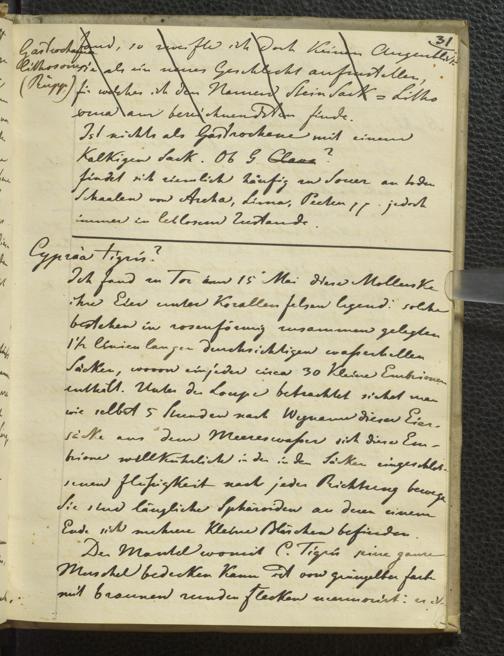 31
Gastrochaena
lithosomia
(Rüpp.)
fand, so zweifle ich doch keinen Augenblick
sie als ein neues Geschlecht aufzustellen,
für welches ich den Namen Steinsack = Litho
am bezeichnendsten finde.
Ist nichts als Gastrochaene mit einem
Kalkigen Sack. Ob G Clava?
findet sich ziemlich häufig zu Souer an toden
Schaalen von Archa, Lima, Pecten pp. jedoch
immer in leblosem Zustande.
Cypräa tigris?
Ich fand zu Tor am 15 Mai diese Molluske
ihre Eier unter Korallenfelsen legend: solche
bestehen in rosenförmig zusammen gelegten
1½ Linien langen durchsichtigen wasserhellen
Säcken, wovon ein jeder circa 30 Kleine Embrionen
enthält. Unter der Loupe betrachtet siehet man
wie selbst 5 Stunden nach Wegname dieser Eier-
säcke aus dem Meereswasser sich diese Em-
brione willkührlich in der in den Säcken eingeschlos-
senen flüssigkeit nach jeder Richtung bewege
Sie sind längliche Sphäroiden an deren einem
Ende sich mehrere kleine Bläschen befinden.
Der Mantel womit C. Tigris seine ganze
Muschel bedecken kann ist von grüngelber farbe
mit braunen runden flecken marmorirt: